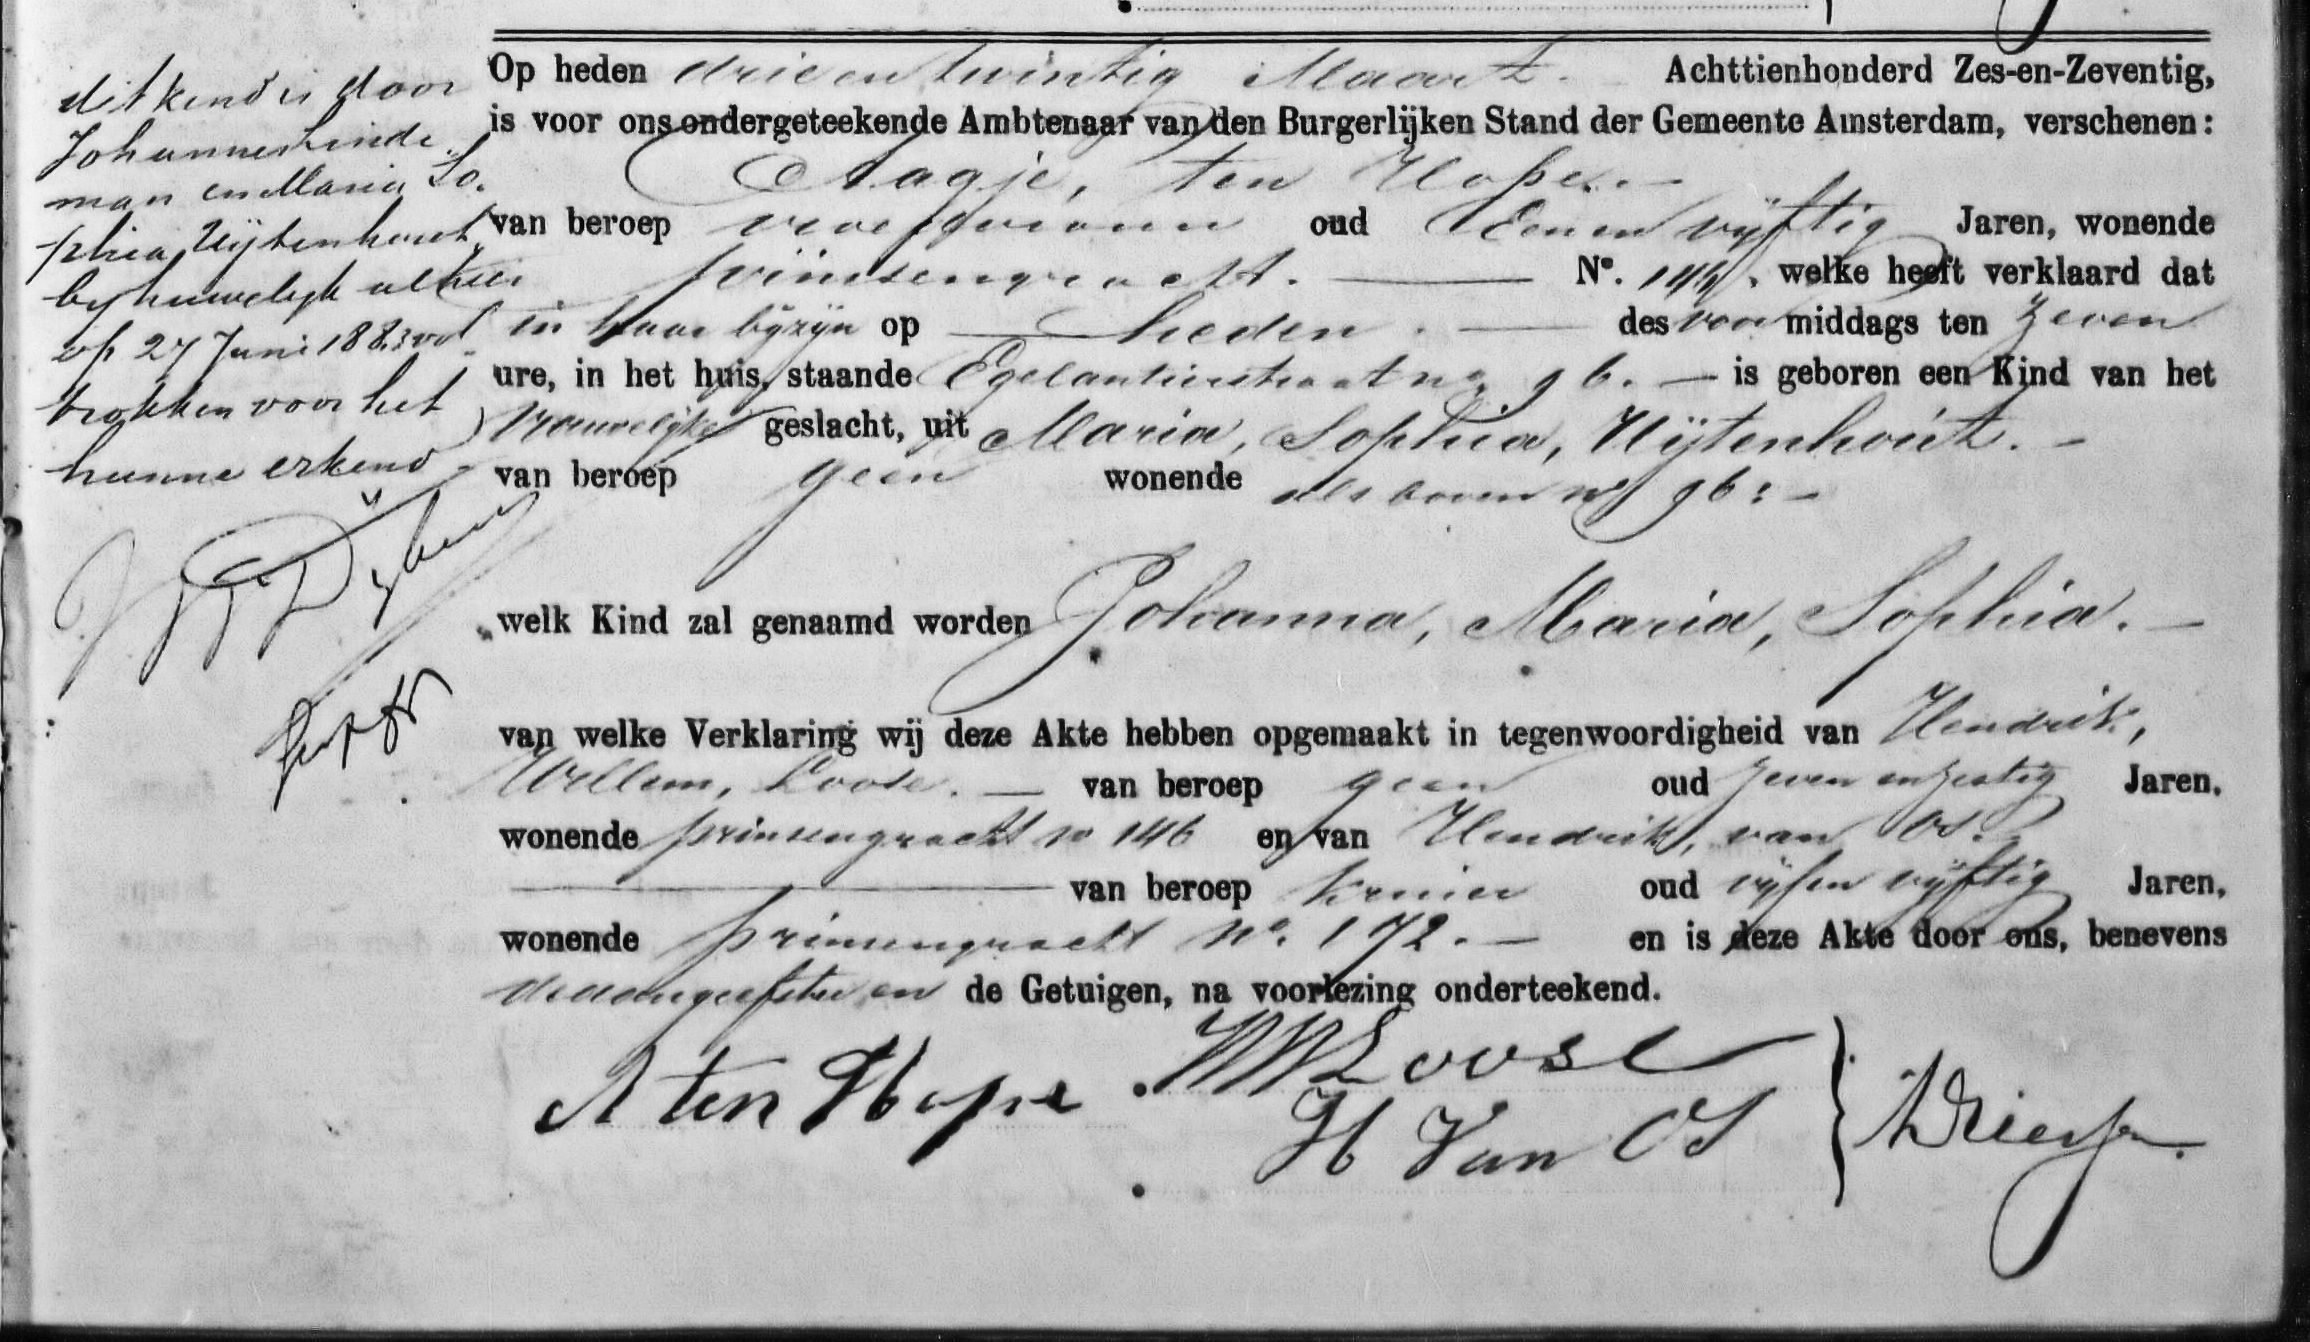 Op heden drieentwintig Maart. Achttienhonderd Zes-en-Zeventig,
is voor ons ondergeteekende Ambtenaar van den Burgerlijken Stand der Gemeente Amsterdam, verschenen:
Aagje, ten Hope. —
van beroep vroedvrouw oud Eenen vijftig Jaren, wonende
prinsengracht. — No. 144, welke heeft verklaard dat
in haar bijzijn op — heden. — des voor middags ten Zeven
ure, in het huis, staande Egelantierstraat no. 96. — is geboren een Kind van het
Vrouwelijke geslacht, uit Maria, Sophia, Uijtenhout. —
van beroep geen wonende als boven no 96: —
welk Kind zal genaamd worden Johanna, Maria, Sophia. —
van welke Verklaring wij deze Akte hebben opgemaakt in tegenwoordigheid van Hendrik,
Willem, Loose. — van beroep geen oud zeven en zestig Jaren,
wonende prinsengracht no 146 en van Hendrik, van Os.
— van beroep kruier oud vijfen vijftig Jaren,
wonende prinsengracht No. 172. — en is deze Akte door ons, benevens
de aangeefster en de Getuigen, na voorlezing onderteekend.
A ten Hope
HWLoose
H Van OS
dit kind is door
Johannes Linde
man en Maria So.
phia Uijtenhout,
bij huwelijk alhier
op 27 Juni 1883 vol
trokken voor het
hunne erkend